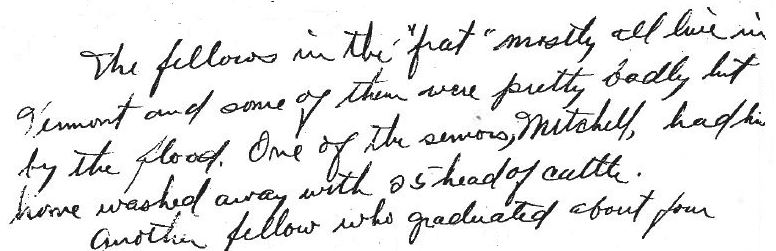 The fellows in the "frat" mostly all live in
Vermont and some of them were pretty badly hit
by the flood. One of the seniors, Mitchell, had his
home washed away with 25 head of cattle.
Another fellow who graduated about four